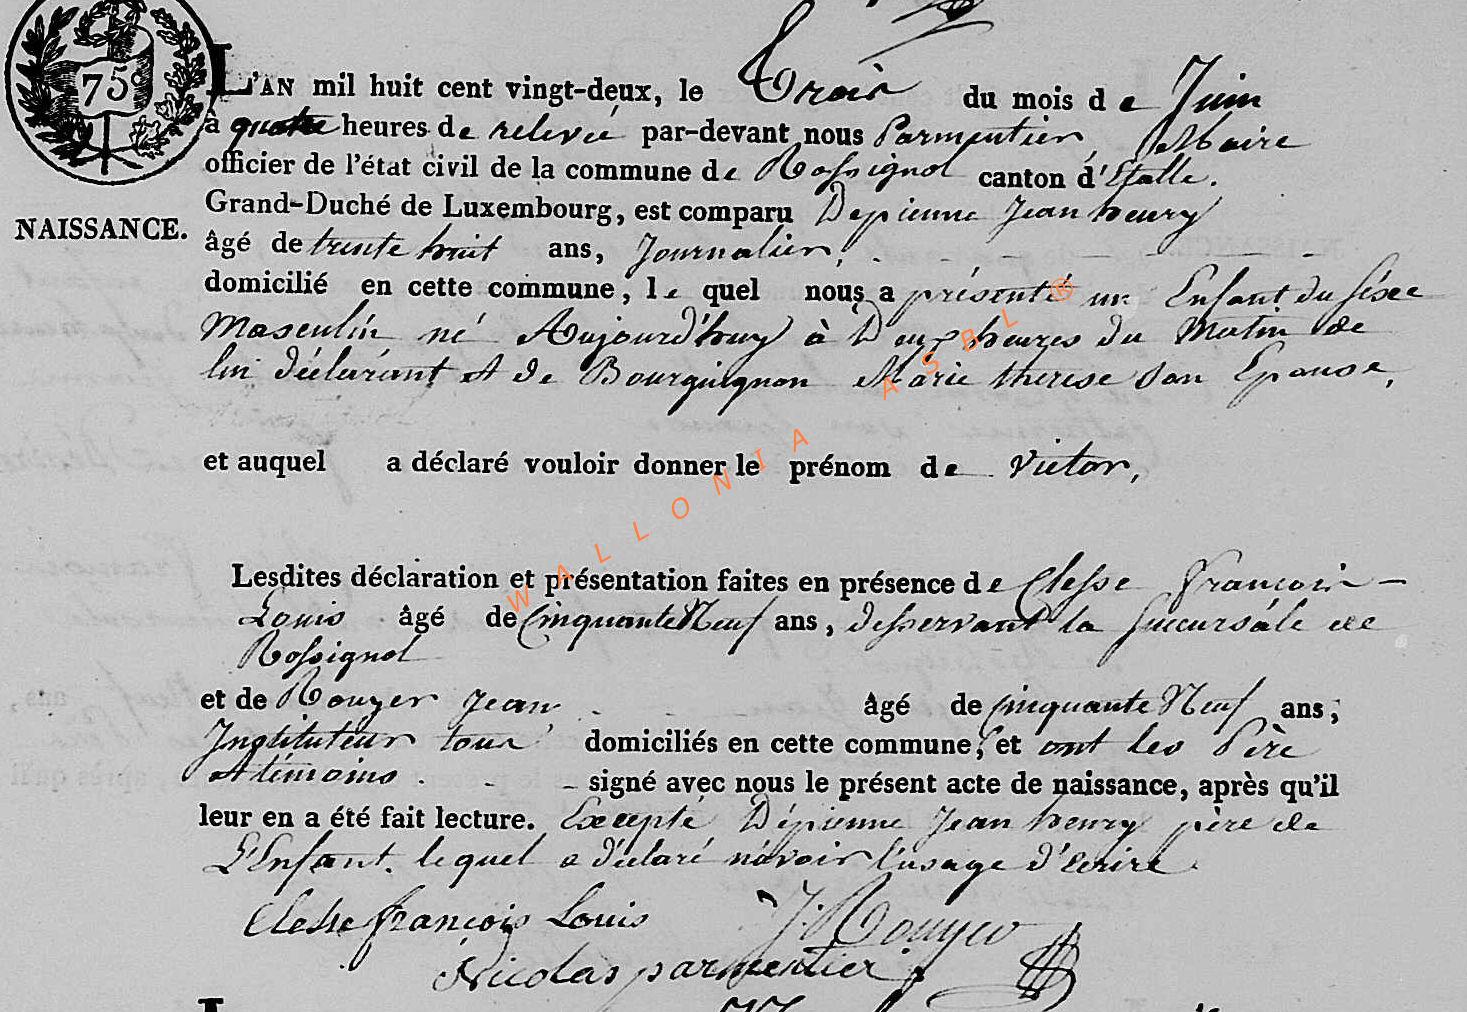 75c
L'AN mil huit cent vingt-deux, le Trois du mois de Juin
à quatre heures de relevée par-devant nous Parmentier, Maire
officier de l'état civil de la commune de Rossignol canton d'Etalle.
Grand-Duché de Luxembourg, est comparu Depienne Jean henry
NAISSANCE.
âgé de trente huit ans, Journalier,
domicilié en cette commune, le quel nous a présenté un Enfant du séxe
Masculin né Aujourd'huy à Deux heures du Matin de
lui déclarant et de Bourguignon Marie therese son Epouse,
et auquel a déclaré vouloir donner le prénom de Victor,
Lesdites déclaration et présentation faites en présence de Clesse francois
Louis âgé de Cinquante Neuf ans, desservant la succursale de
Rossignol
et de Rouyer Jean âgé de Cinquante Neuf ans,
Instituteur tous domiciliés en cette commune, et ont les Père
et témoins signé avec nous le présent acte de naissance, après qu'il
leur en a été fait lecture. Excepté Dépienne Jean henry père de
L'Enfant. lequel a déclaré n'avoir l'usage d'écrire
Clesse françois Louis J. Rouyer
Nicolas parmentier
WALLONIA ASBL ®